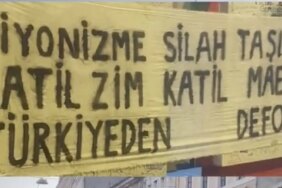 İYONİZME SİLAH TAŞI
ATİL ZİM KATİL MAE
TÜRKİYEDEN DEFO